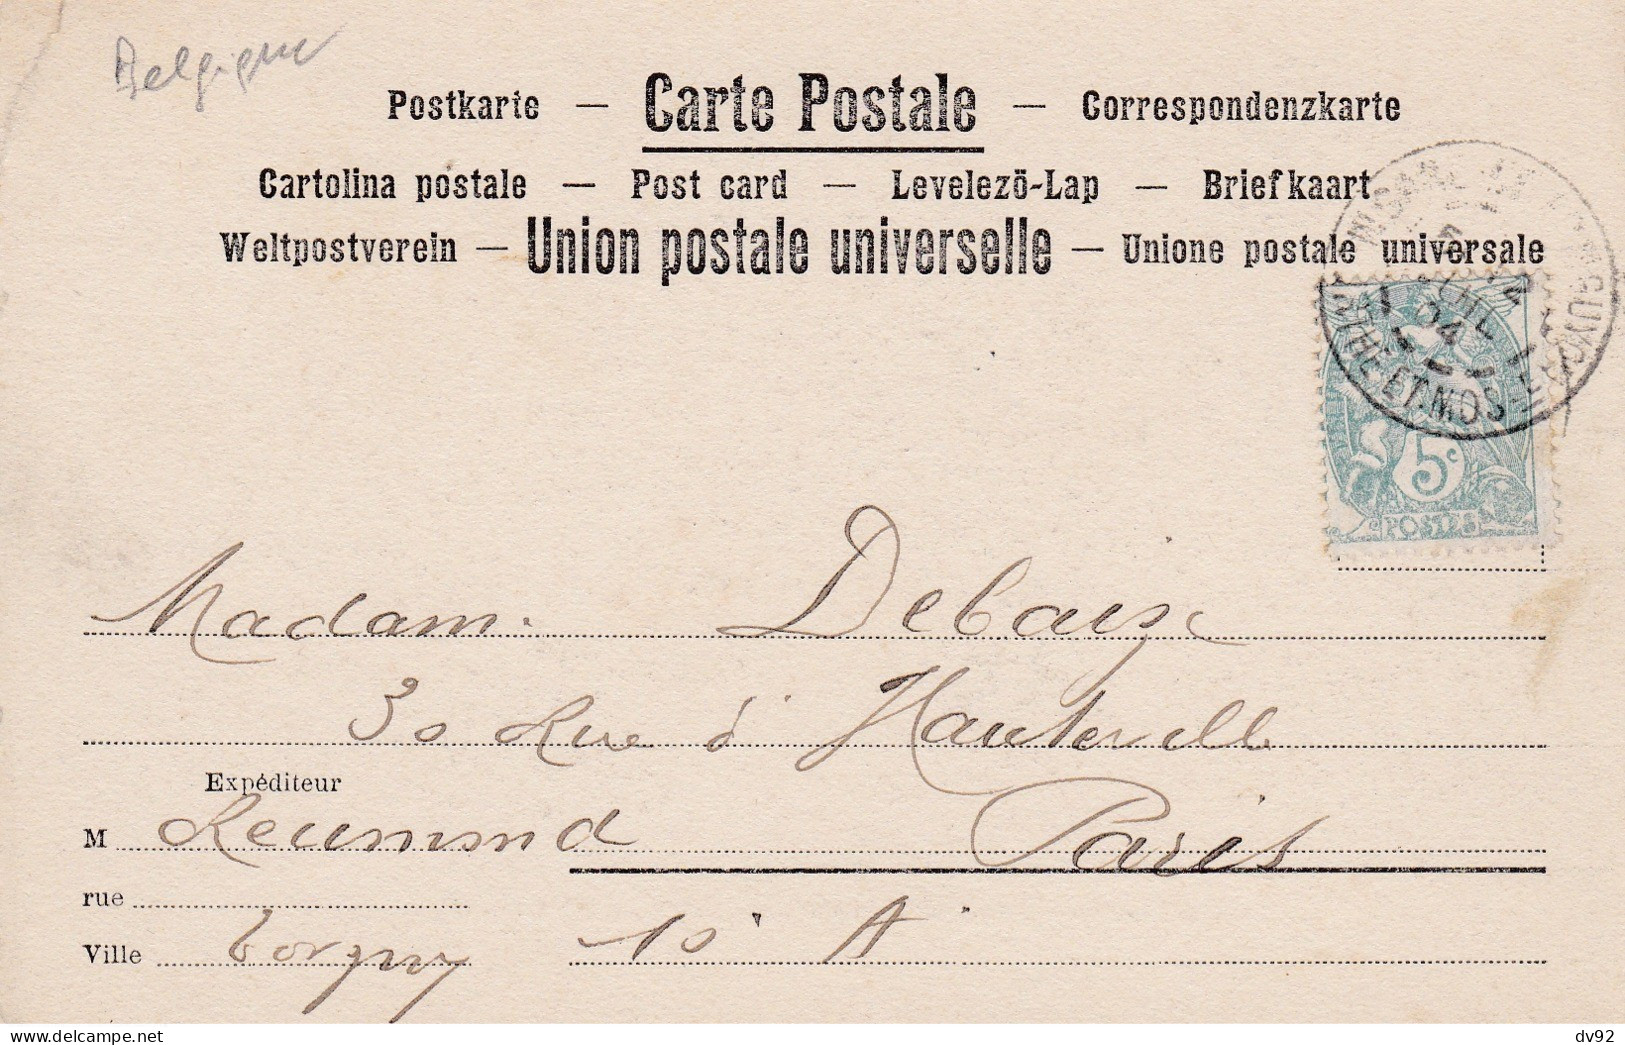 Belgique
Postkarte — Carte Postale — Correspondenzkarte
Cartolina postale — Post card — Levelezö-Lap — Briefkaart
Weltpostverein — Union postale universelle — Unione postale universale
04
THE-ET-MOS
5c
POSTES
Madame Debaize
30 Rue d'Hauteville
Expéditeur
M Reumond Paris
rue
Ville Torgny 10e A
dv92